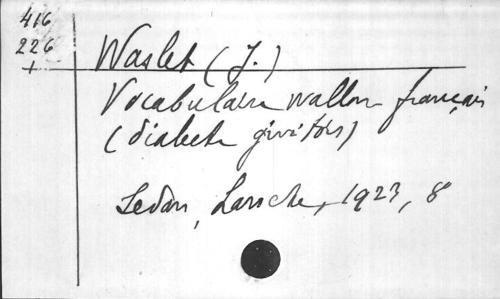 416
226
+
Waslet (J.)
Vocabulaire wallon français
(dialecte givetois)
Sedan, Laroche, 1923, 8°